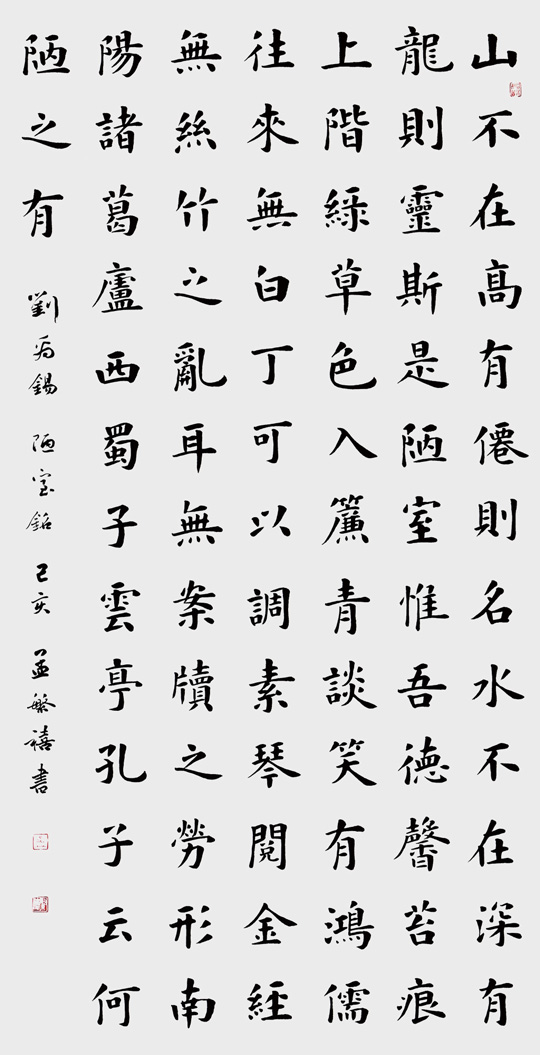 山不在高有僊則名水不在深有
龍則靈斯是陋室惟吾德馨苔痕
上階綠草色入簾青談笑有鴻儒
往來無白丁可以調素琴閱金經
無絲竹之亂耳無案牘之勞形南
陽諸葛廬西蜀子雲亭孔子云何
陋之有 劉禹錫 陋室銘 己亥 孟繁禧書